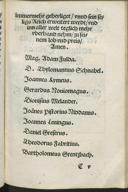 immermehr geheiliget / vnd sein se-
ligs Reich erweitert werde / vnd
vns aller welt teglich mehr
vberhand neme / zu sei-
nem lob vnd preis /
Amen.
Mag. Adam Fulda.
D. Thylomannus Schnabel.
Joannes Kymeus.
Gerardus Nouiomagus.
Dionysius Melander.
Joānes Pistorius Niddanus.
Joannes Leningus.
Daniel Greserus.
Theodorus Fabritius.
Bartholomeus Grentzbach.
C v